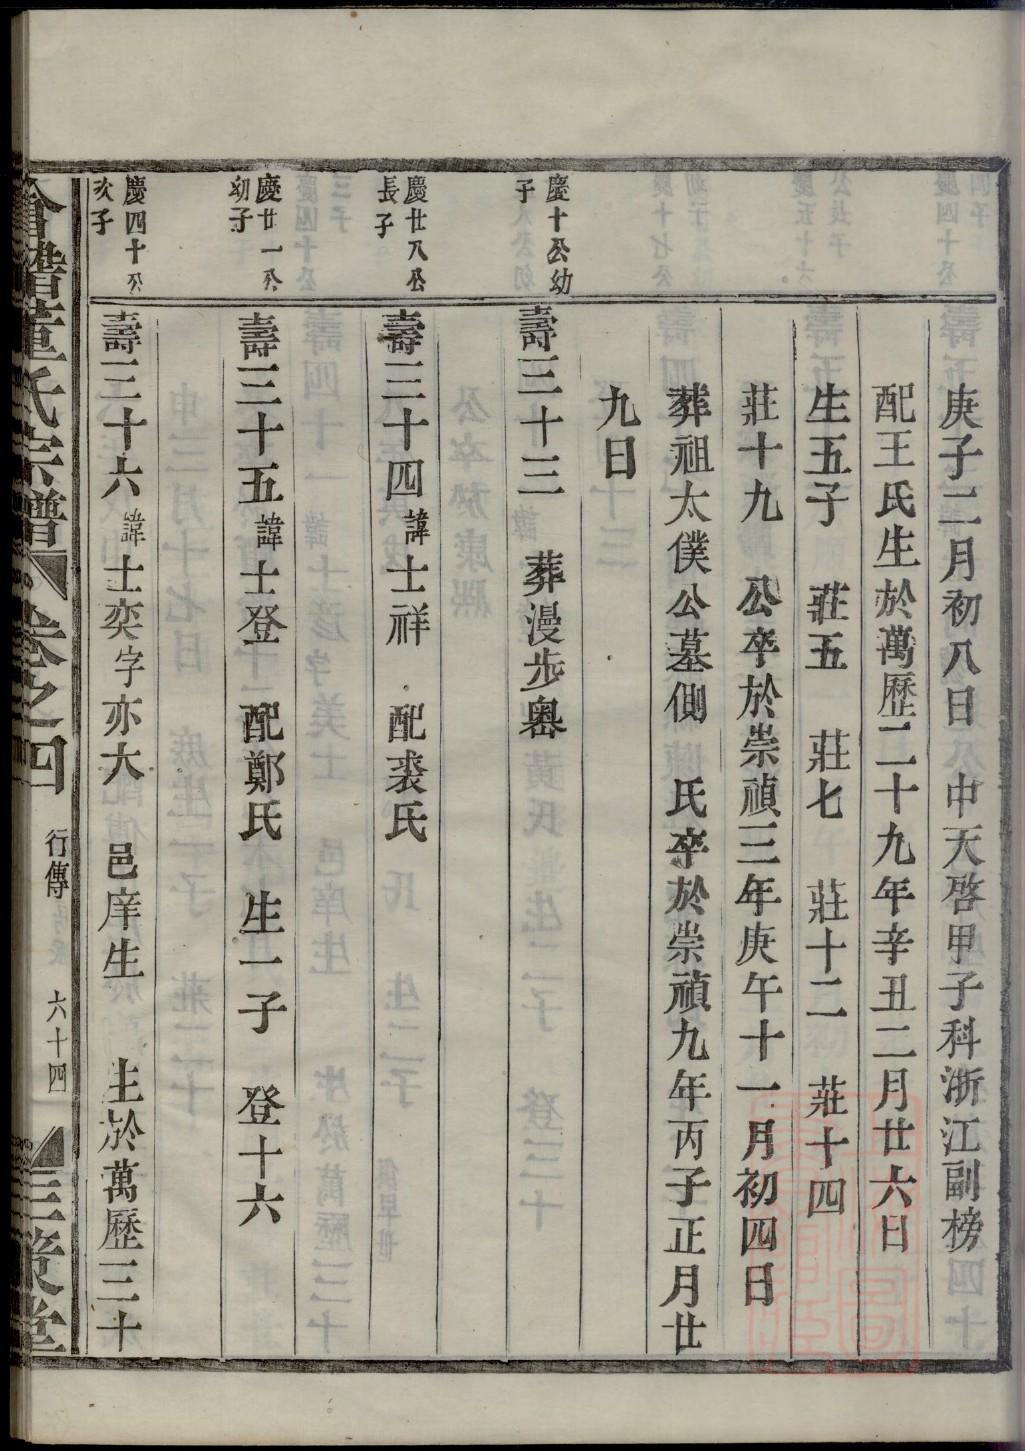 庚子二月初八日 中天啓甲子科浙江副榜
配王氏生於萬歷二十九年辛丑二月廿六日
生五子 莊五 莊七 莊十二 莊十四
莊十九 公卒於崇禎三年庚午十一月初四日
葬祖太僕公墓側 氏卒於崇禎九年丙子正月廿
九日
慶十公幼
子
壽三十三 葬漫步嶴
慶廿八公
長子
壽三十四諱士祥 配裘氏
慶廿一公
幼子
壽三十五諱士登 配鄭氏 生一子 登十六
慶四十公
次子
壽三十六諱士奕字亦大 邑庠生 生於萬歷三十
會稽董氏宗譜 卷之四 行傳 六十四